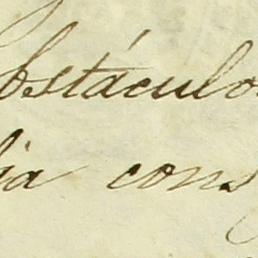 bstáculo
ia cons